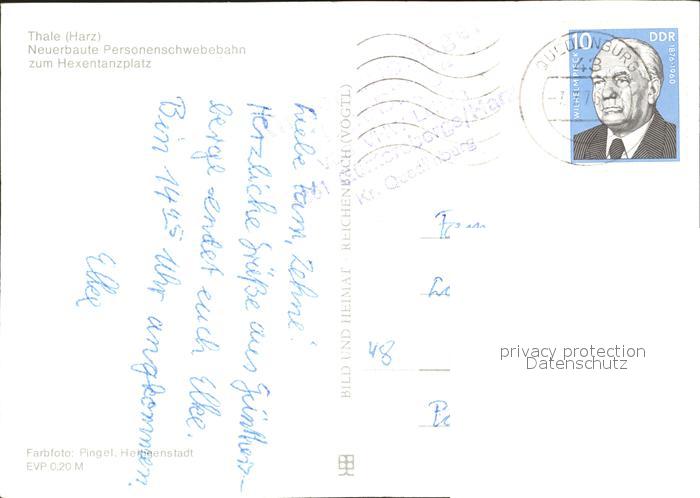 Thale (Harz)
Neuerbaute Personenschwebebahn
zum Hexentanzplatz
Liebe Fam. Zehne!
Herzliche Grüße aus Günthers-
berge sendet euch Elke.
Bin 14 25 Uhr angekommen.
Elke
Farbfoto: Pingel, Heiligenstadt
EVP 0,20 M
BILD UND HEIMAT REICHENBACH (VOGTL)
Kr. Quedlinburg
QUEDLINBURG
43
10
DDR
WILHELM PIECK
1876-1960
48
privacy protection
Datenschutz